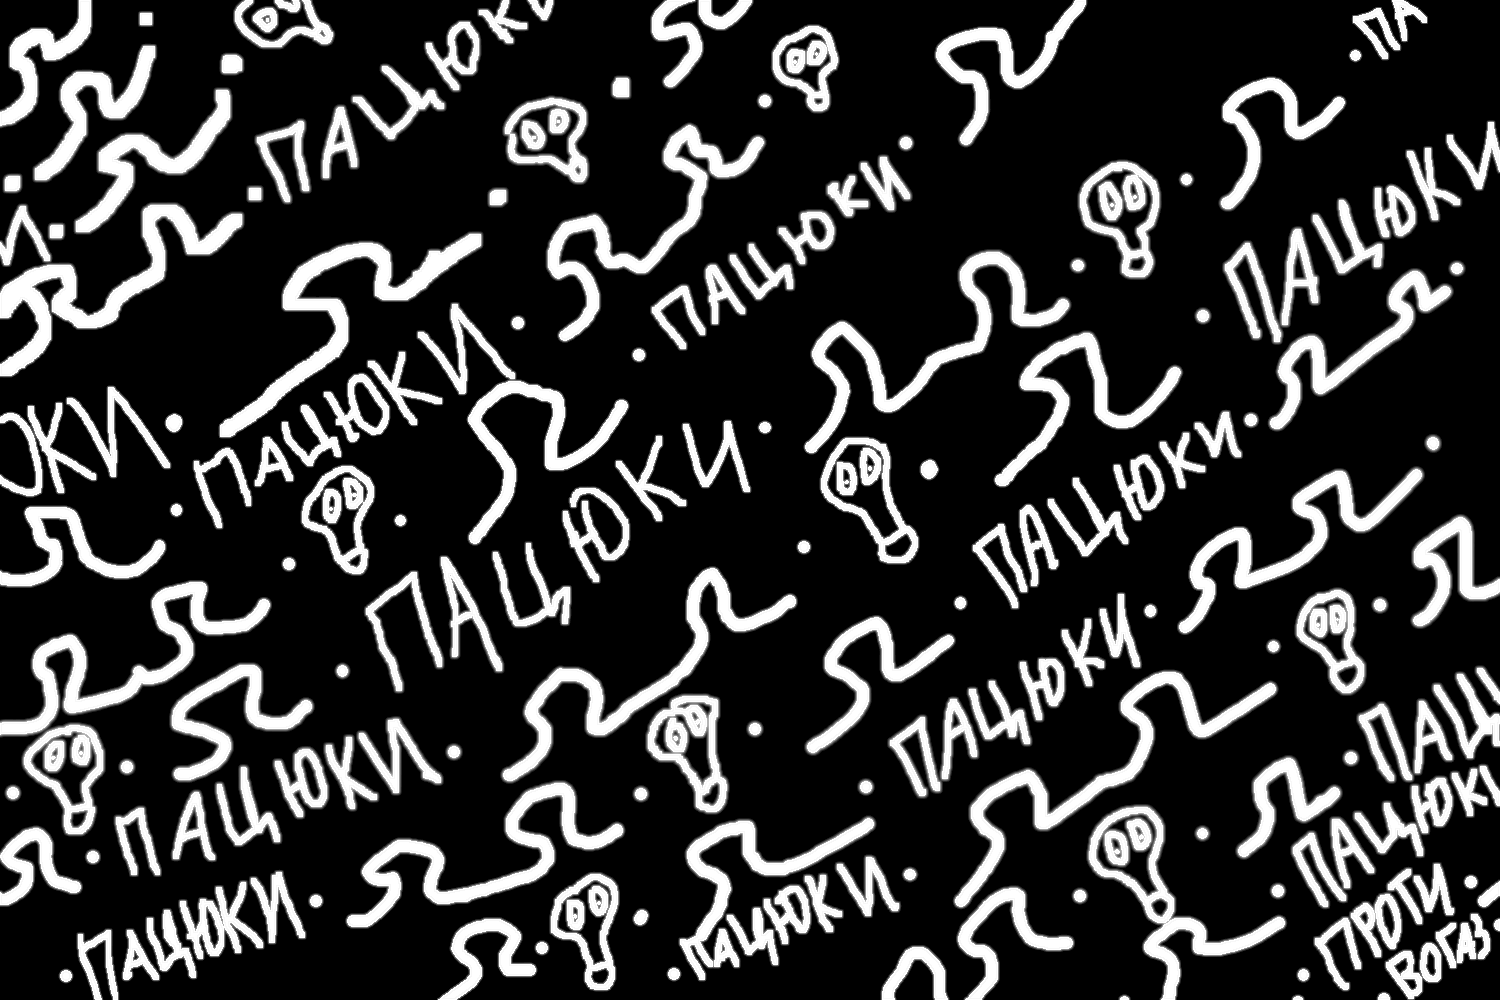 ПАЦЮКИ
ПА
ПАЦЮКИ
ПАЦЮКИ
ПАЦЮКИ
ЮКИ
ПАЦЮКИ
ПАЦЮКИ
ПАЦЮКИ
ПАЦЮКИ
ПАЦЮ
ПАЦЮКИ
ПАЦЮКИ
ПАЦЮКИ
ПАЦЮКИ
ПРОТИ
ВОГАЗ